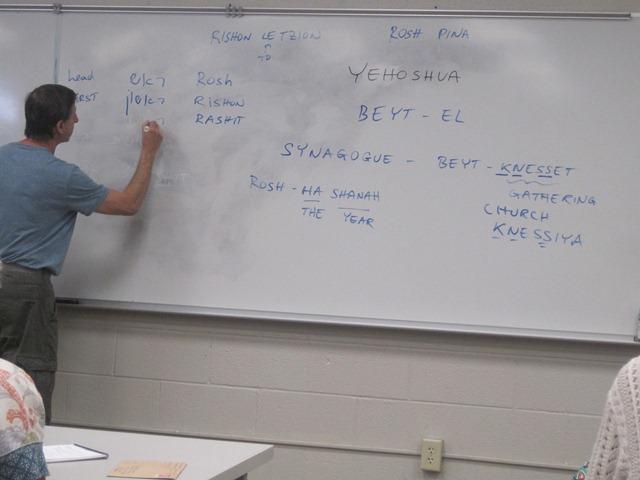 RISHON LE TZION ROSH PINA
TO
head ראש Rosh YEHOSHUA
FIRST ראשון RISHON
RASHIT BEYT - EL
SYNAGOGUE - BEYT - KNESSET
ROSH - HA SHANAH GATHERING
THE YEAR CHURCH
KNESSIYA